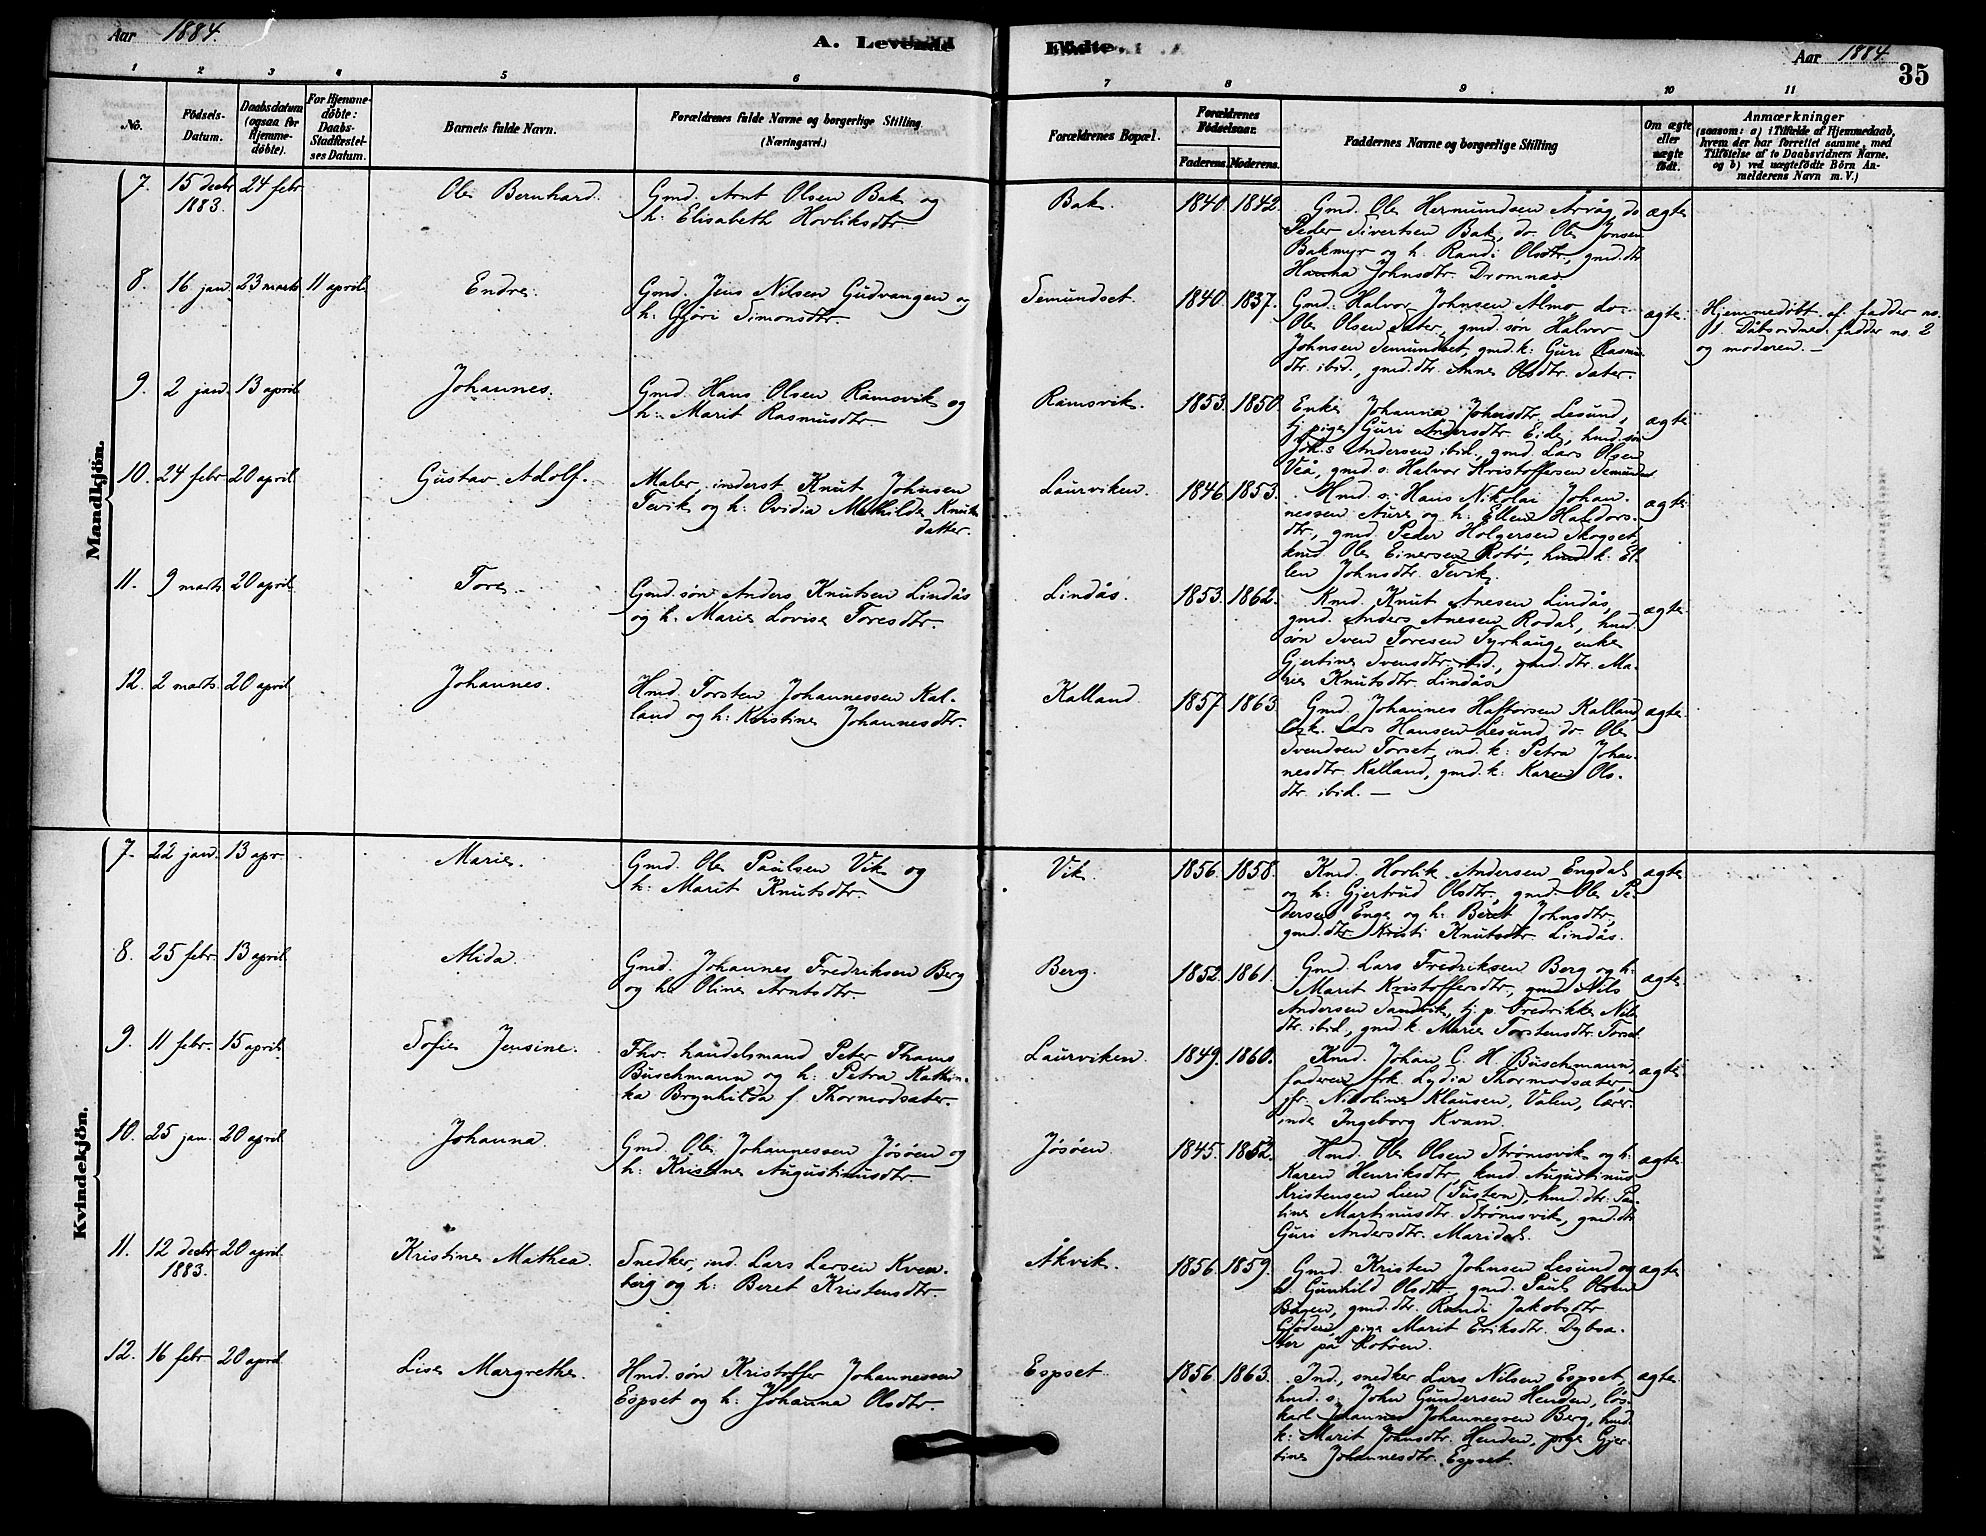 Aar 1884.
A. Levende
Fødte.
Aar 1884.
35
1 2 3 4 5 6 7 8 9 10 11
No.
Födsels-
Datum.
Daabsdatum
(ogsaa for
Hjemme-
döbte).
For Hjemme-
döbte:
Daabs-
Stadfæstel-
ses Datum.
Barnets fulde Navn.
Forældrenes fulde Navne og borgerlige Stilling
(Næringsvei.)
Forældrenes Bopæl.
Forældrenes
Födselsaar.
Faderens. Moderens.
Faddernes Navne og borgerlige Stilling
Om ægte
eller
uægte
födt.
Anmærkninger
(saasom: a) i Tilfælde af Hjemmedaab,
hvem der har forrettet samme, med
Tilföielse af to Daabsvidners Navne,
og b) ved uægtefödte Börn An-
melderens Navn m. V.)
Mandkjön.
7. 15 decbr 24 febr
1883.
Ole Bernhard.
Gmd. Arnt Olsen Bak og
h: Elisabeth Hovliksdtr
Bak.
1840. 1842.
Gmd. Ole Hermundsen Årvåg, do
Peder Sivertsen Bak, do. Ole Jonsen
Bakmyr og h. Randi Olsdtr, gmd.dtr
Hanna Johnsdtr. Dromnæs
ægte
8. 16 jan. 23 marts 11 april.
Endre.
Gmd. Jens Nilsen Gudvangen og
h: Gjøri Simonsdtr.
Semundset.
1840. 1837.
Gmd. Halvor Johnsen Almo, do
Ole Olsen Sæter, gmd. søn Halvor
Johnsen Semundset, gmd. k: Guri Rasmus
dtr. ibid., gmd.dtr. Anne Olsdtr. Sæter.
ægte.
Hjemmedøbt af fadder no.
1. Dåbsvidner: fadder no. 2
og moderen. —
9. 2 jan. 13 april.
Johannes.
Gmd. Hans Olsen Ramsvik og
h: Marit Rasmusdtr
Ramsvik.
1853. 1850.
Enke Johanna Johnsdtr. Lesund,
tj. pige Guri Andersdtr. Eide, hmd. søn
Johs Andersen ibid., gmd. Lars Olsen
Veå, gmd. s: Halvor Kristoffersen Semundset
ægte.
10. 24 febr 20 april.
Gustav Adolf.
Maler, inderst Knut Johnsen
Tevik og h: Ovidia Mathilde Knuts
datter.
Laurviken.
1846. 1853.
Hmd. s: Hans Nikolai Johan-
nessen Aure og h: Ellen Haldors-
dtr, gmd. Peder Holgersen Skogset,
kmd. Ole Einersen Rotø, hmd. k. El-
len Johnsdtr. Tevik.
ægte.
11. 9 marts. 20 april.
Tore.
Gmd. søn Anders Knutsen Lindås
og h: Marie Lovise Toresdtr.
Lindås.
1853. 1862.
Kmd. Knut Anesen Lindås,
gmd. Anders Anesen Rodal, hmd.
søn Sven Toresen Tyrhaug, enke
Gjertine Svensdtr. ibid., gmd. dtr. Ma-
rie Knutsdtr. Lindås
ægte.
12. 2 marts. 20 april
Johannes.
Hmd. Torsten Johannessen Kal-
land og h: Kristine Johannesdtr.
Kalland.
1857 1863
Gmd. Johannes Haftorsen Kalland
Lars Hansen Lesund, do Ole
Svendsen Torset, ind. k: Petra Johan-
nesdtr. Kalland, gmd. k: Karen Ols-
dtr. ibid. —
ægte.
Kvindekjön.
7. 22 jan. 13 apr.
Marie.
Gmd. Ole Paulsen Vik og
h: Marit Knutsdtr.
Vik.
1856. 1858.
Kmd. Hovlik Andersen Engdal
og h: Gjertrud Olsdtr, gmd. Ole Pe-
dersen Enge og h: Beret Johnsdtr,
gmd. dtr. Kristi Knutsdtr. Lindås.
ægte.
8. 25 febr. 13 april.
Alida.
Gmd. Johannes Fredriksen Berg
og h: Oline Arntsdtr.
Berg.
1852. 1861.
Gmd. Lars Fredriksen Berg og h:
Marit Kristoffersdtr, gmd Nils
Andersen Sandvik, tj. p. Fredrikke Nils
dtr. ibid., gmd. k. Marie Torstensdtr. Torset
ægte.
9. 11 febr. 15 april.
Sofie Jensine.
Fhv. handelsmand Peter Thams
Buschmann og h: Petra Kathin-
ka Brynhilda f. Thormodsæter.
Laurviken.
1849. 1860.
Kmd. Johan C. H. Buschmann,
faderen, frk. Lydia Thormodsæter,
jfr. Nikoline Klausen, Valen, lærer-
inde Ingeborg Kvam.
ægte.
10. 25 jan. 20 april.
Johanna.
Gmd. Ole Johannessen Jøsøen og
h: Kristine Augustinusdtr
Jøsøen.
1845. 1852.
Hmd. Ole Olsen Strømsvik og h.
Karen Henriksdtr, kmd. Augustinus
Kristensen Lien (Tustern), hmd. dtr. Pau-
line Martinusdtr. Strømsvik, gmd.dtr
Guri Andersdtr. Maridal.
ægte.
11. 12 decbr 20 april.
1883.
Kristine Mathea.
Snedker, ind. Lars Larsen Kven-
berg og h: Beret Kristensdtr
Åkvik.
1856. 1859.
Gmd. Kristen Johnsen Lesund og
h. Gunhild Olsdtr, gmd. Paul Olsen
Bugen, gmd. dtr. Randi Jakobsdtr.
pige Marit Eriksdtr. Dybsæ-
ter på Rotøen.
ægte
12. 16 febr 20 april
Lise Margrethe.
Hmd. søn Kristoffer Johannessen
Espset og h: Johanna Olsdtr.
Espset.
1856. 1863.
Ind., snedker Lars Nilsen Espset,
hmd. s: John Gundersen Henden, løs-
karl Johannes Johannessen Berg, hmd.
k: Marit Johnsdtr. Henden, pige Gjer-
tine Johannesdtr. Espset.
ægte.